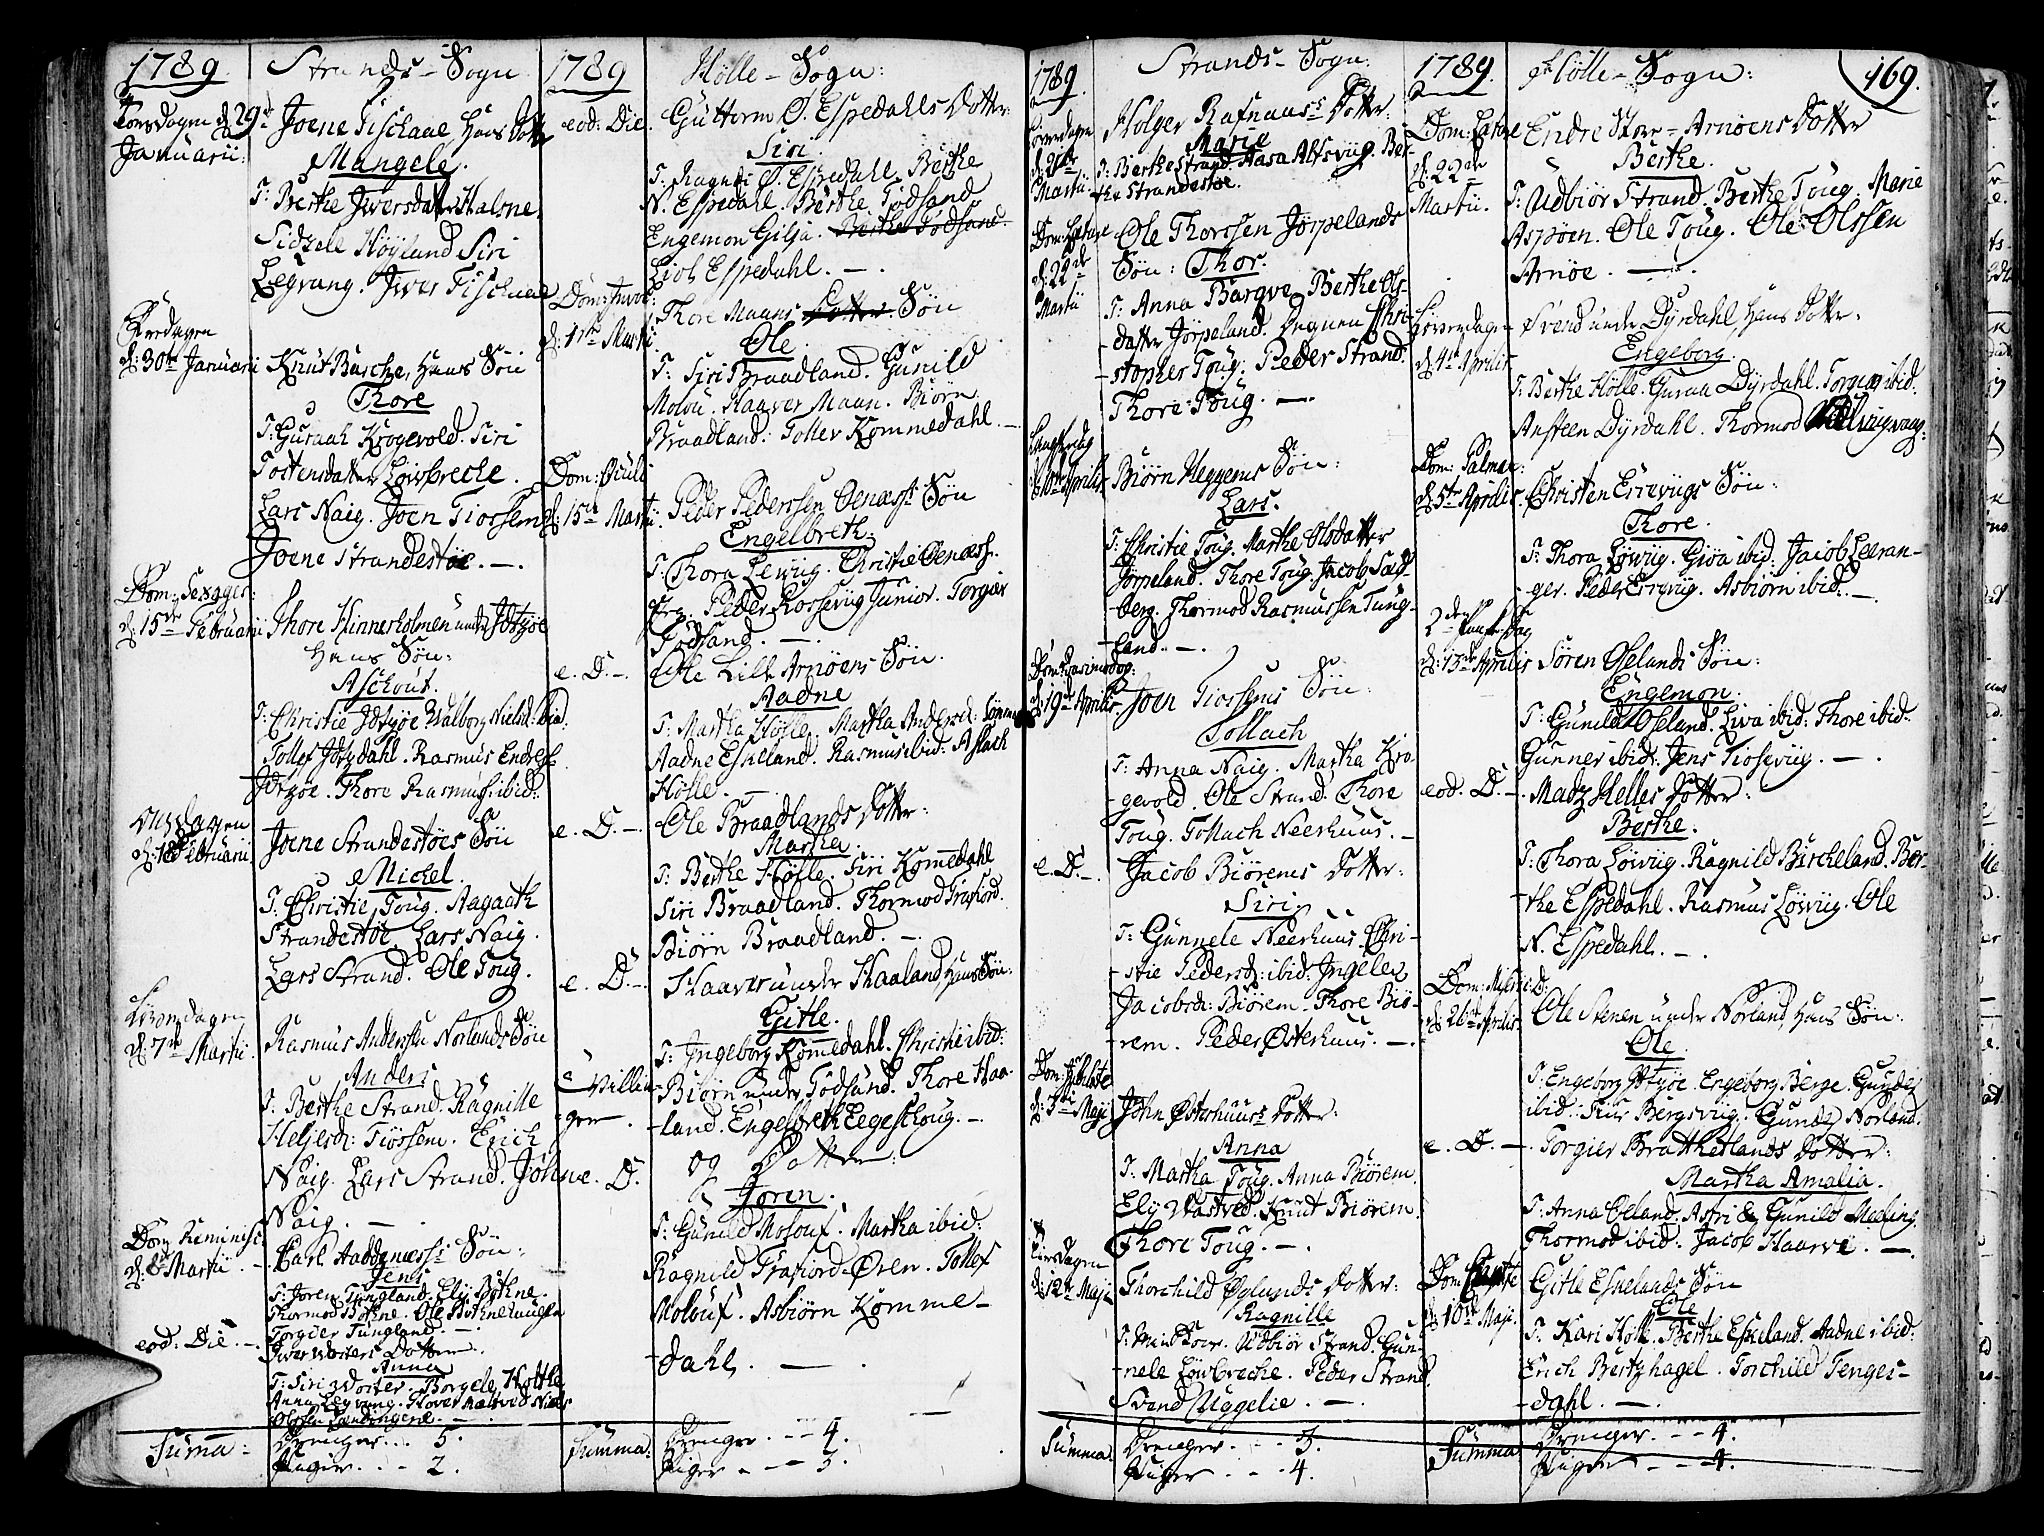 1789.
Strands-Sogn
Torsdagen d. 29de Januarii:
Joene Fischaae Hans Dotter
Mangele.
T: Berthe Iversdatter Halsne.
Sidzele Höyland Siri
Legvang. Iver Fischaae
Fredagen d. 30te Januarii
Knut Barche, Hans Søn
Thore
T: Guraah Krogevold. Siri
Tostensdatter Löwbrecke.
Lars Naig. Joen Tiossem
Joene Strandestöe. —.
Dom: Sexages: d: 15de Februarii
Thore Kinnerholmen under Idszöe
Hans Søn:
Aschout.
T: Christie Idszöe. Walborg Nielsd: ibid.
Tollef Idszdahl. Rasmus Endres.
Idszöe. Thore Rasmus: ibid:
Onsdagen d: 18de Februarii
Joene Strandestöes Søn
Michel.
T: Christie Toug. Aagaath
Strandestöe. Lars Naig.
Lars Strand. Ole Toug.
Löverdagen d: 7de Martii.
Rasmus Anderssen Norlands Søn
Anders
T: Berthe Strand. Ragnille
Heljesd: Tiössem. Erich
Naig. Lars Strand. Johne
Naig. —.
Dom: Reminisc: d: 8de Martii. —
Carl Aadnenæss: Søn:
Jens
T: Joren Tungland. Eli Bothne.
Thormod Bothne. Ole Bothne
Torgier Tungland. —.
eod: Die. —
Iver Wosters Dotter:
Anna
T: Siri Woster. Borgele Holthe
Anna Legvang. Niels
Olssen
Suma:
Drenger... 5.
Piger... 2.
1789
Hölle-Sogn:
eod: Die.
Guttorm O. Espedahls Dotter:
Siri.
T. Ragndi S. Espedahl. Berthe
N. Espedahl. Berthe Födsand
Engemon Gilja. Berthe Födsand.
Liot Espedahl. —.
Dom: Invoc: d: 1ste Martii.
Thore Maans Dotter Søn
Ole.
T: Siri Braadland. Gunild
Molou. Haaver Maan. Biörn
Braadland: Tollev Kommedahl. —
Dom: Oculi d: 15de Martii.
Peder Pederssen Oenæss: Søn
Engelbreth.
T. Thora Lewiig. Christie Oenæss.
Peder Rossevüg Junior. Torgier
Födsand. —.
e. D. —.
Ole Lille Arnöens Søn.
Aadne
T: Martha Hölle. Martha Andersd:
Aadne Eskeland. Rasmus ibid: Aslach
Hölle. —.
e. D. —.
Ole Braadlands Dotter:
Martha.
T: Berthe Hölle. Siri Komedahl
Siri Braadland. Thormod Frafiord.
Biörn Braadland. —.
e. D. —.
Haaver under Haaland, Hans Søn:
Gitle.
T: Ingeborg Komedahl. Christie ibid:
Biörn under Födsand. Thore Haa-
land. Engelbreth Eegeskoug. —.
e. D.
og Dotter:
Joren.
T: Gunild Molouf. Martha ibid:
Ragnild Frafiord-Ören. Tollef
Molouf. Asbiörn Komme-
dahl, —.
Summa:
Drenger... 4.
Piger... 5.
1789.
Strands-Sogn:
Löverdagen d: 21de Martii
Holger Rafnaas: Dotter:
Marie
T: Berthe Strand. Aasa Altsviig. Ber-
the Strandestöe.
Dom: Lætare d: 22de Martii
Ole Thorssen Jörpelands
Søn: Thor.
T: Anna Bargve. Berthe Ols-
datter Jörpeland. Degnen Chri-
stopher Toug. Peder Strand.
Thore Toug. —.
Langfredag d: 10de Aprilis
Biörn Heggems Søn:
Lars.
T: Christie Toug. Marthe Olsdatter
Jörpeland. Thore Toug. Jacob Sæd-
berg. Thormod Rasmussen Tung-
land. —.
Dom: Qvasimodog: d: 19de Aprilis.
Joen Tiossems Søn:
Tollach
T: Anna Naig. Martha Kro-
gevold. Ole Strand. Thore
Toug. Tollach Neerhuus. —
e. D. —.
Jacob Biörems Dotter:
Siri.
T: Gunnele Neerhuus. Chri-
stie Pedersd: ibid: Ingeleg
Jacobsd: Biörem. Thore Biö-
rem. Peder Østerhuus. —.
Dom: Jubilate d: 3die Maji
John Østerhuus: Dotter:
Anna
T: Martha Toug. Anna Biörem.
Eli Wastved. Knud Biörem.
Thore Toug. —.
Tirsdagen d: 12te Maji
Thorchild Øglands Dotter:
Ragnille
T: Udbiör Strand. Gun-
nele Löwbrecke. Peder Strand.
Svend Uggelie. —.
Summa:
Drenger... 3.
Piger... 4.
1789.
Hölle-Sogn:
169.
Dom: Lætare d: 22de Martii.
Endre Store-Arnöens Dotter
Berthe.
T: Udbiör Strand. Berthe Toug. Marie
Aspöen. Ole Toug. Ole Olssen
Arnöe. —.
Löverdagen d: 4de Aprilis
Svend under Dyrdahl Hans Dotter:
Engeborg.
T: Berthe Hölle. Guraa Dyrdahl. Torgier ibid.
Ansteen Dyrdahl. Thormod
Dom: Palmar: d: 5te Aprilis.
Christen Errevigs Søn:
Thore.
T: Thora Löwiig. Giöa ibid: Jacob Leeran-
ger. Peder Erreviig. Asbiörn ibid: —.
2den Paaskedag d: 13de Aprilis
Sören Oselands Søn:
Engemon:
T: Gunild Oseland. Liva ibid: Thore ibid:
Gunner ibid: Jens Tiosevüg. —.
eod. D. —.
Madz Helles Dotter:
Berthe.
T: Thora Löwiig. Ragnild Bircheland. Ber-
the Espedahl. Rasmus Löwiig. Ole
N. Espedahl. —.
Dom: Miseric: D: d: 26de Aprilis
Ole Stenen under Norland, Hans Søn:
Ole.
T: Engeborg Idszöe. Engeborg Berge. Gunder
ibid: Siur Bergsviig. Gunder Norland.
e. D. —.
Torgier Brattetlands Dotter:
Martha Amalia.
T: Anna Oeland. Astri & Gunild Meling
Thormod ibid: Jacob Haarvi. —.
Dom: Cantate d: 10de Maji.
Gitle Eskelands Søn
Ole
T. Kari Hölle. Berthe Eskeland. Aadne ibid:
Erich Bertzhagel. Torchild Tenges-
dahl. —.
Summa
Drenger... 4.
Piger... 4.